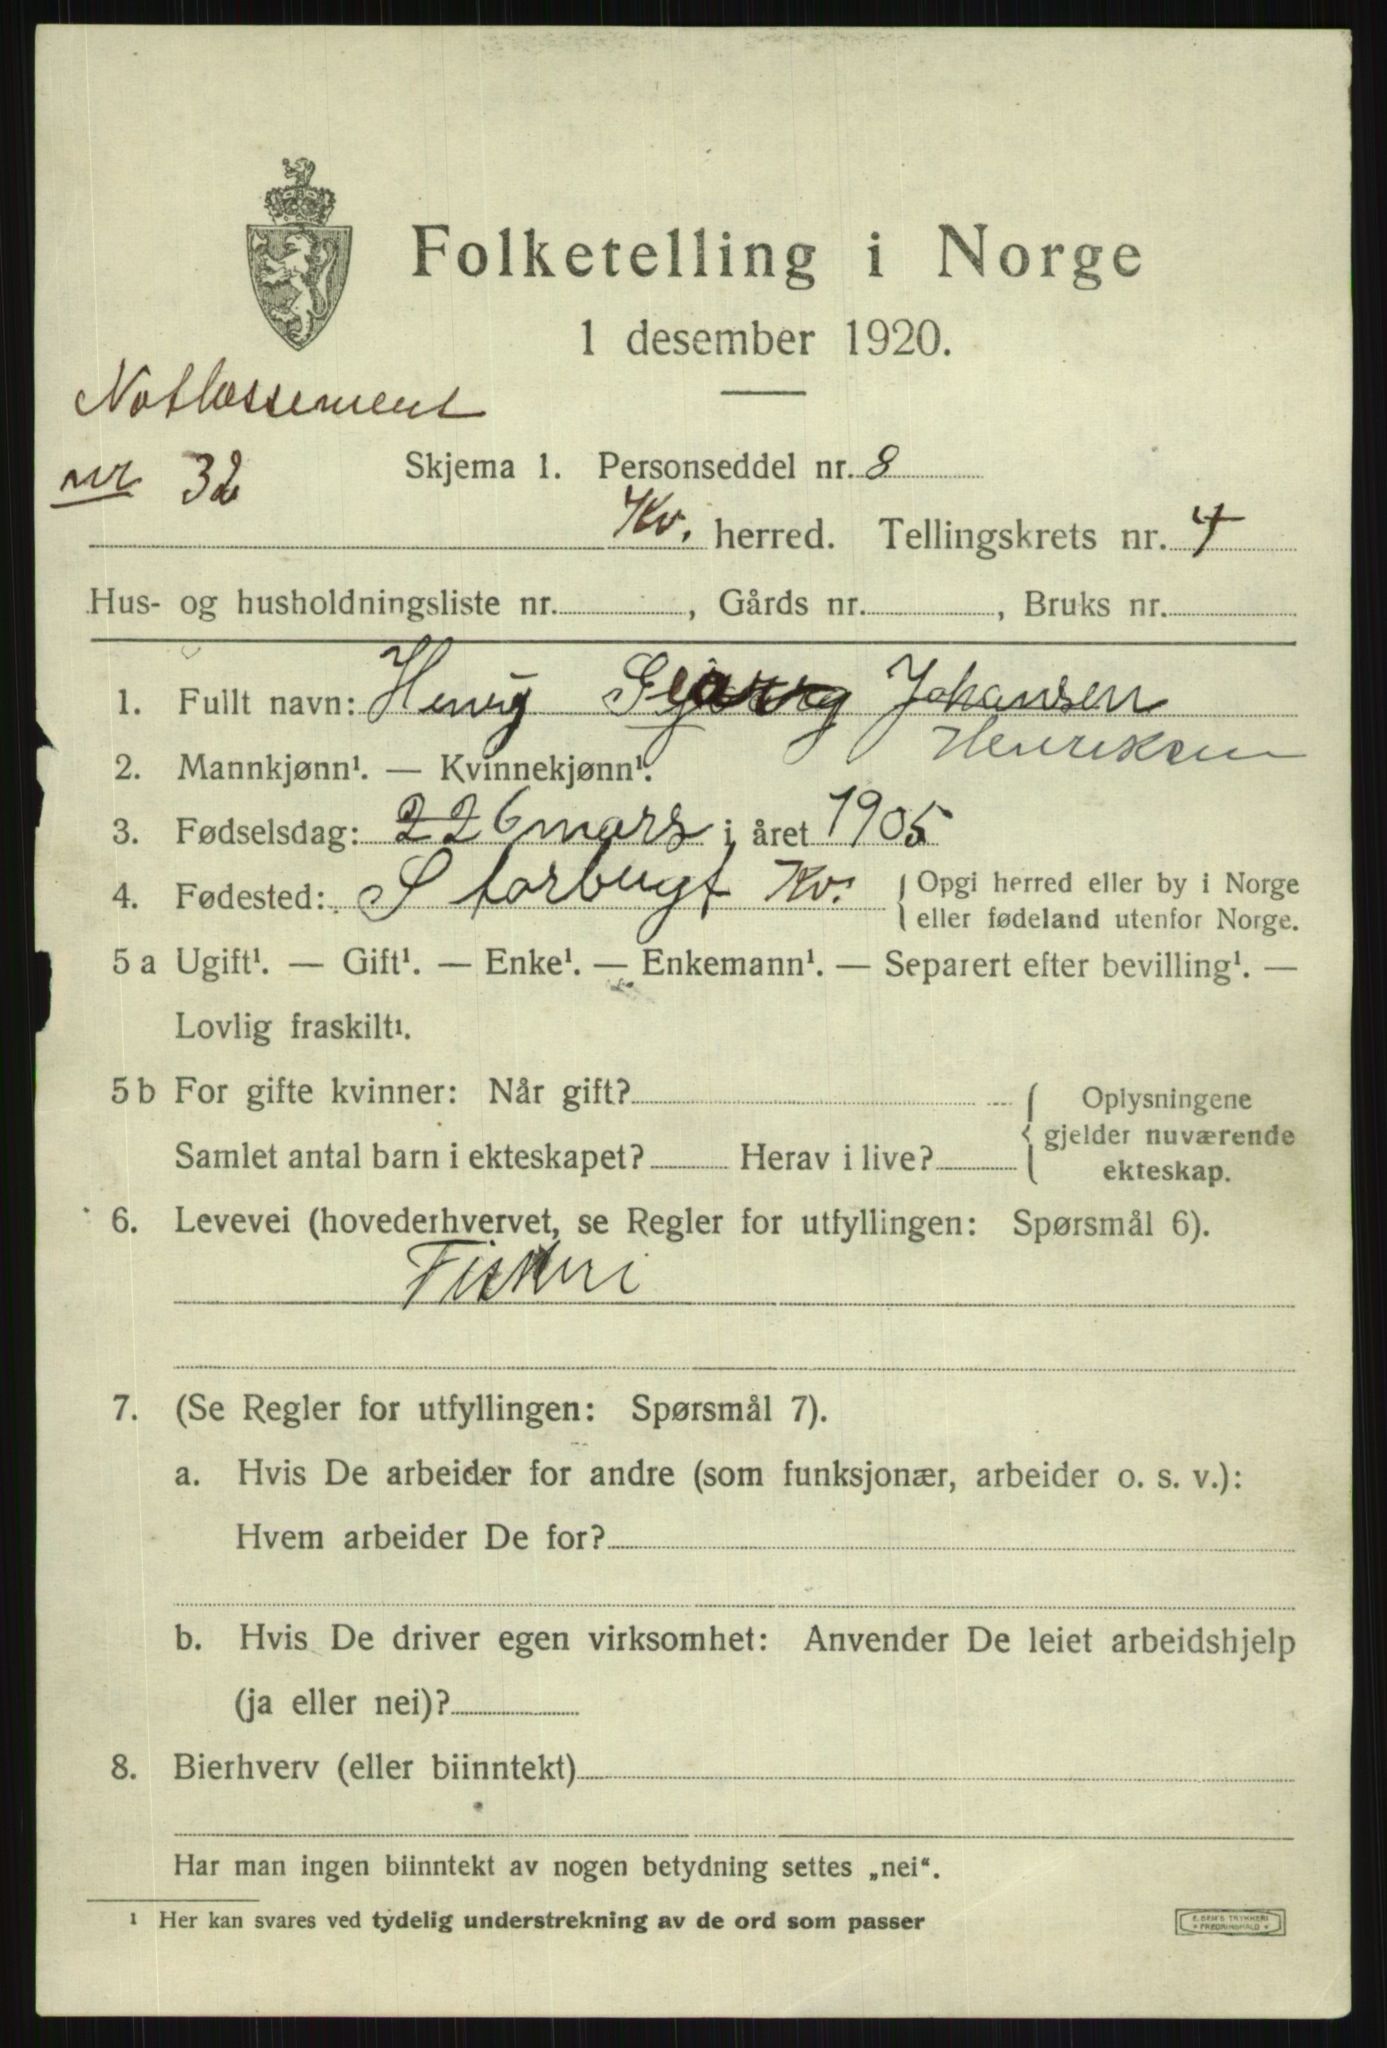 Folketelling i Norge
1 desember 1920.
Notlassement
nr 32
Skjema 1. Personseddel nr. 8
Kv. herred. Tellingskrets nr. 4
Hus- og husholdningsliste nr. , Gårds nr. , Bruks nr.
1. Fullt navn: Henry Johansen
Henriksen
2. Mannkjønn¹. — Kvinnekjønn¹.
3. Fødselsdag: 226 mars i året 1905
4. Fødested: Storbugt Kv. Opgi herred eller by i Norge
eller fødeland utenfor Norge.
5 a Ugift¹. — Gift¹. — Enke¹. — Enkemann¹. — Separert efter bevilling¹. —
Lovlig fraskilt¹.
5 b For gifte kvinner: Når gift? Oplysningene
gjelder nuværende
Samlet antal barn i ekteskapet? Herav i live? ekteskap.
6. Levevei (hovederhvervet, se Regler for utfyllingen: Spørsmål 6).
Fiskeri
7. (Se Regler for utfyllingen: Spørsmål 7).
a. Hvis De arbeider for andre (som funksjonær, arbeider o. s. v.):
Hvem arbeider De for?
b. Hvis De driver egen virksomhet: Anvender De leiet arbeidshjelp
(ja eller nei)?
8. Bierhverv (eller biinntekt)
Har man ingen biinntekt av nogen betydning settes „nei“.
¹ Her kan svares ved tydelig understrekning av de ord som passer
E. SEM'S TRYKKERI
FREDRIKSHALD